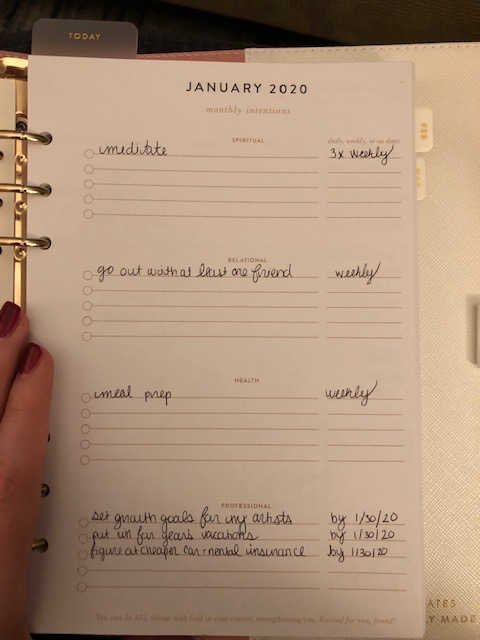 TODAY
JANUARY 2020
monthly intentions
SPIRITUAL daily, weekly, or on date:
meditate 3x weekly
RELATIONAL
go out with at least one friend weekly
HEALTH
meal prep weekly
PROFESSIONAL
set growth goals for my artists by 1/30/20
put in for year's vacations by 1/30/20
figure out cheaper car-rental insurance by 1/30/20
You can do ALL things with God in your corner, strengthening you. Excited for you, friend!
FEB
ATES
LY MADE